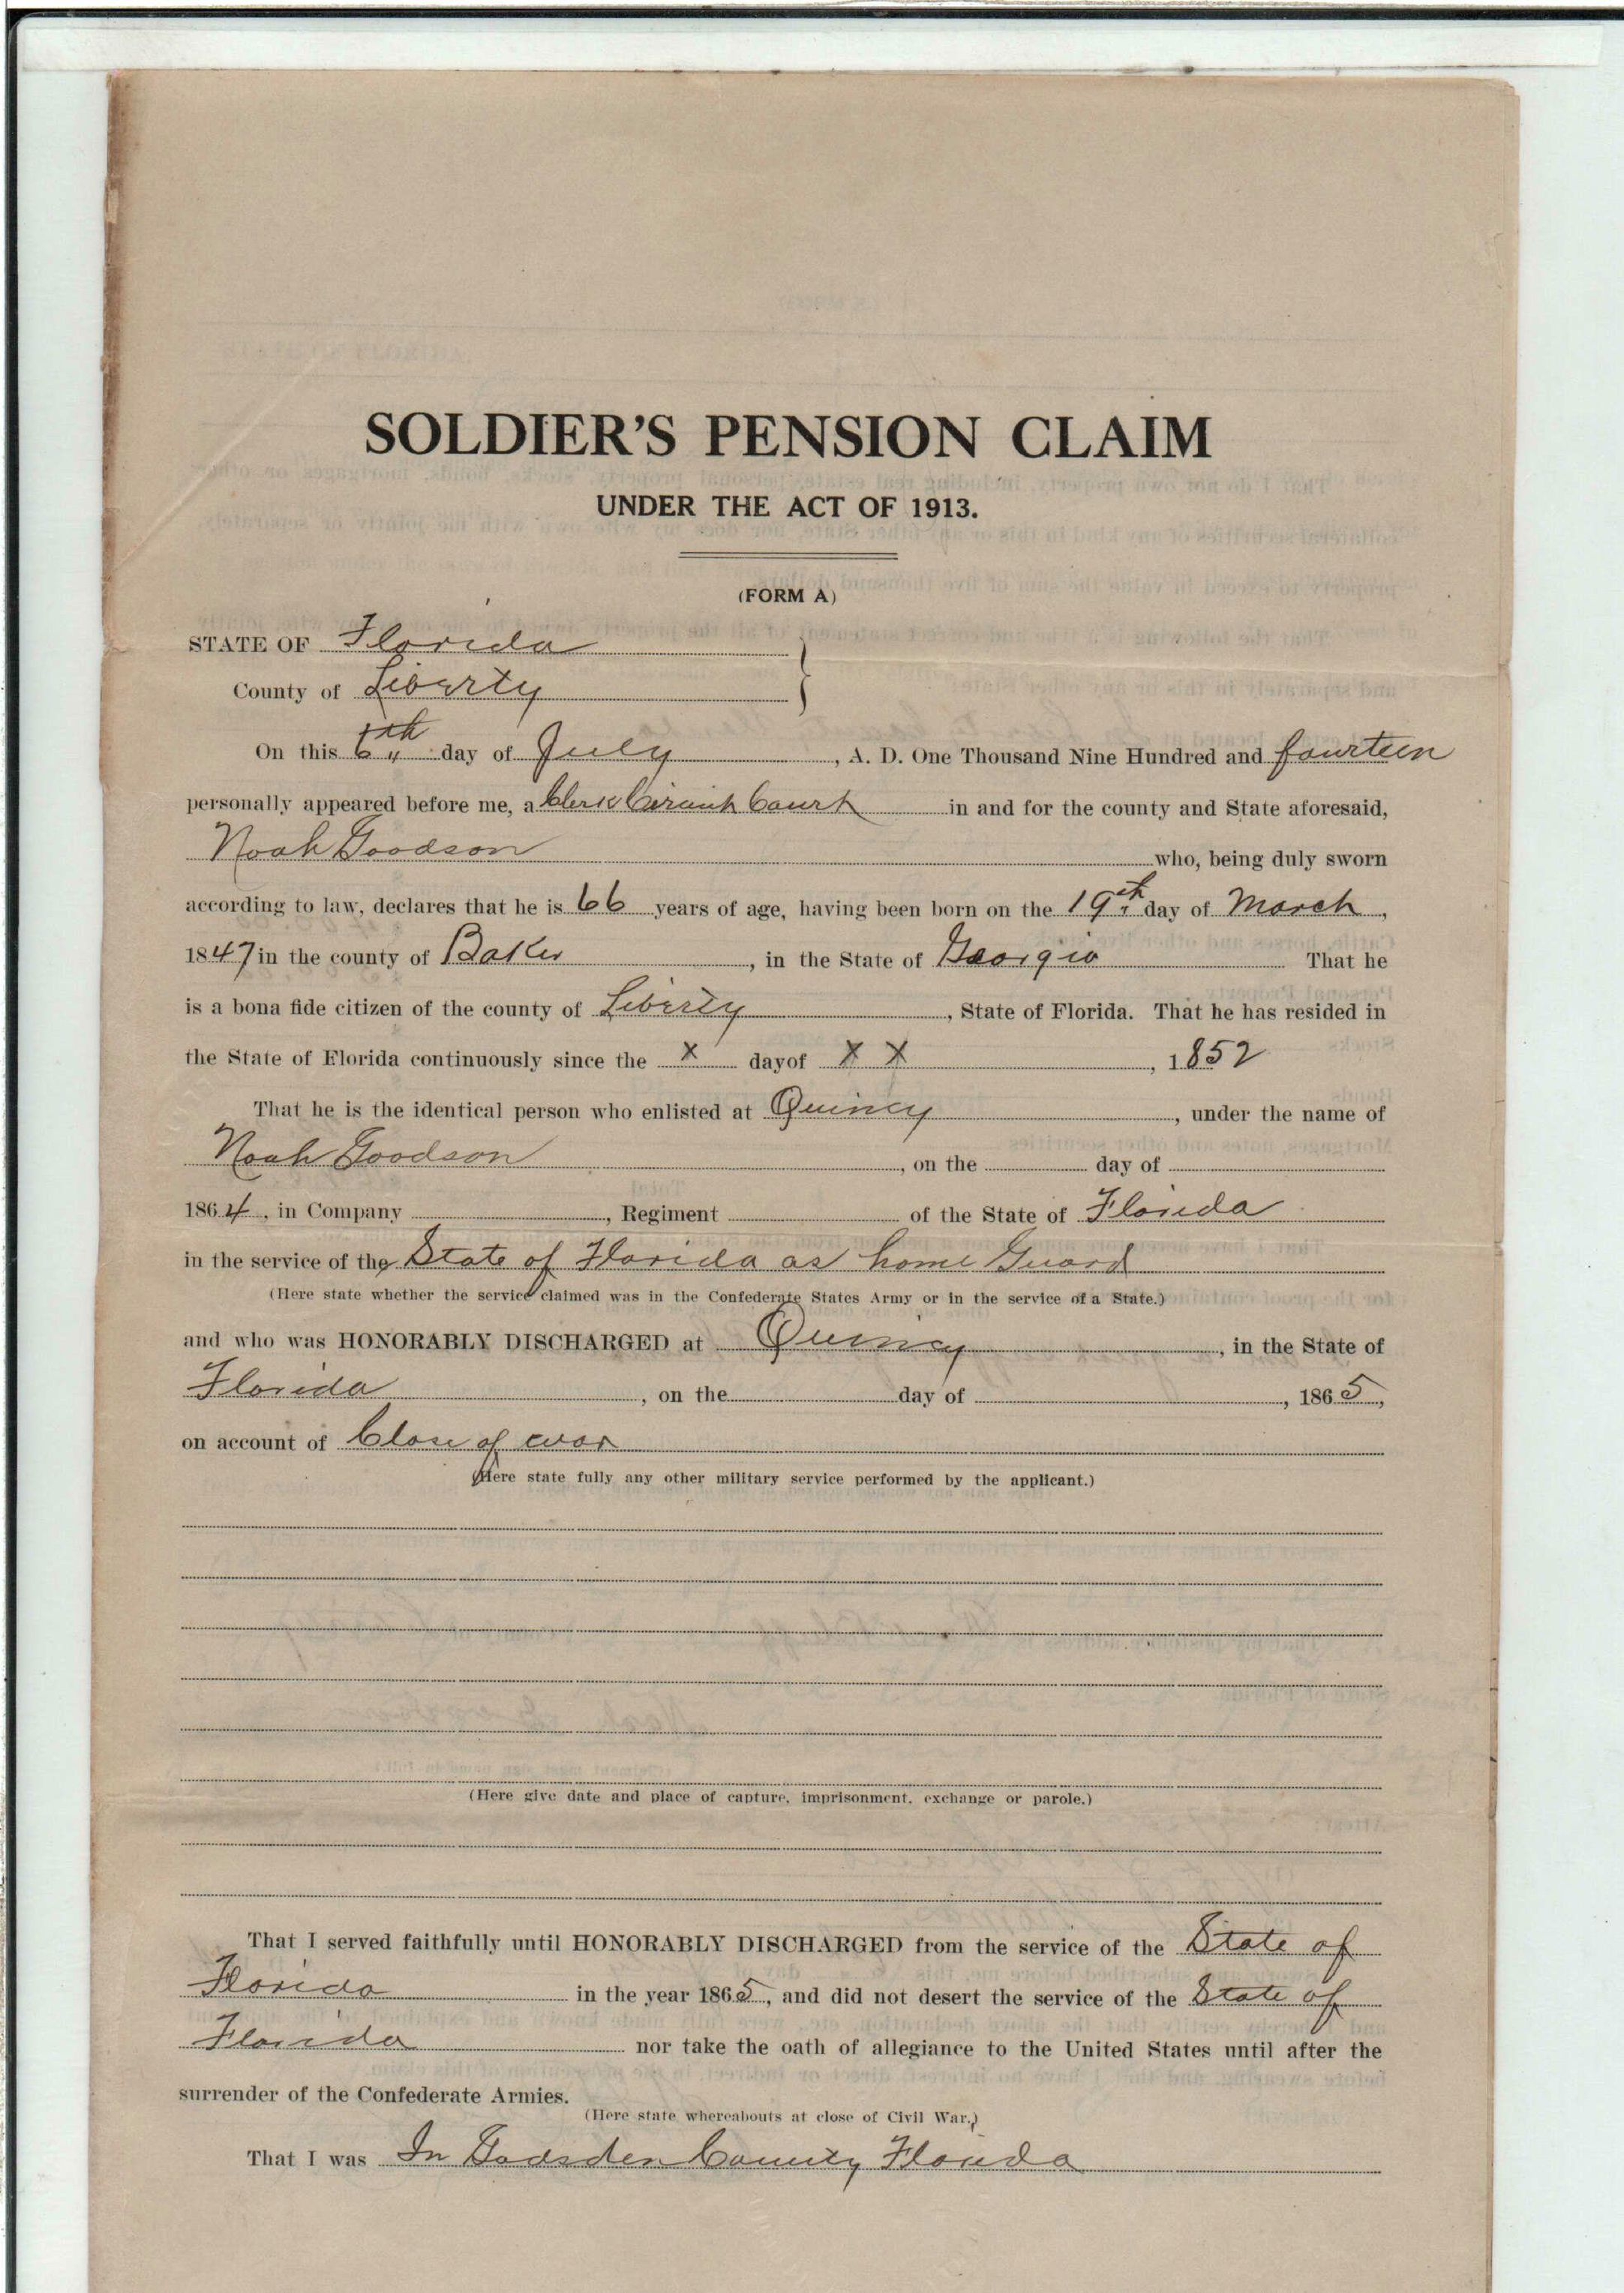 SOLDIER'S PENSION CLAIM
UNDER THE ACT OF 1913.
(FORM A)
STATE OF Florida
County of Liberty
On this 6th day of July, A. D. One Thousand Nine Hundred and fourteen
personally appeared before me, a Clerk Circuit Court in and for the county and State aforesaid,
Noah Goodson who, being duly sworn
according to law, declares that he is 66 years of age, having been born on the 19th day of March,
1847 in the county of Baker, in the State of Georgia That he
is a bona fide citizen of the county of Liberty, State of Florida. That he has resided in
the State of Florida continuously since the x day of X X, 1852
That he is the identical person who enlisted at Quincy, under the name of
Noah Goodson, on the day of
1864, in Company, Regiment of the State of Florida
in the service of the State of Florida as home Guard
(Here state whether the service claimed was in the Confederate States Army or in the service of a State.)
and who was HONORABLY DISCHARGED at Quincy, in the State of
Florida, on the day of, 1865,
on account of Close of war
(Here state fully any other military service performed by the applicant.)
(Here give date and place of capture, imprisonment, exchange or parole.)
That I served faithfully until HONORABLY DISCHARGED from the service of the State of
Florida in the year 1865, and did not desert the service of the State of
Florida nor take the oath of allegiance to the United States until after the
surrender of the Confederate Armies.
(Here state whereabouts at close of Civil War.)
That I was In Gadsden County Florida